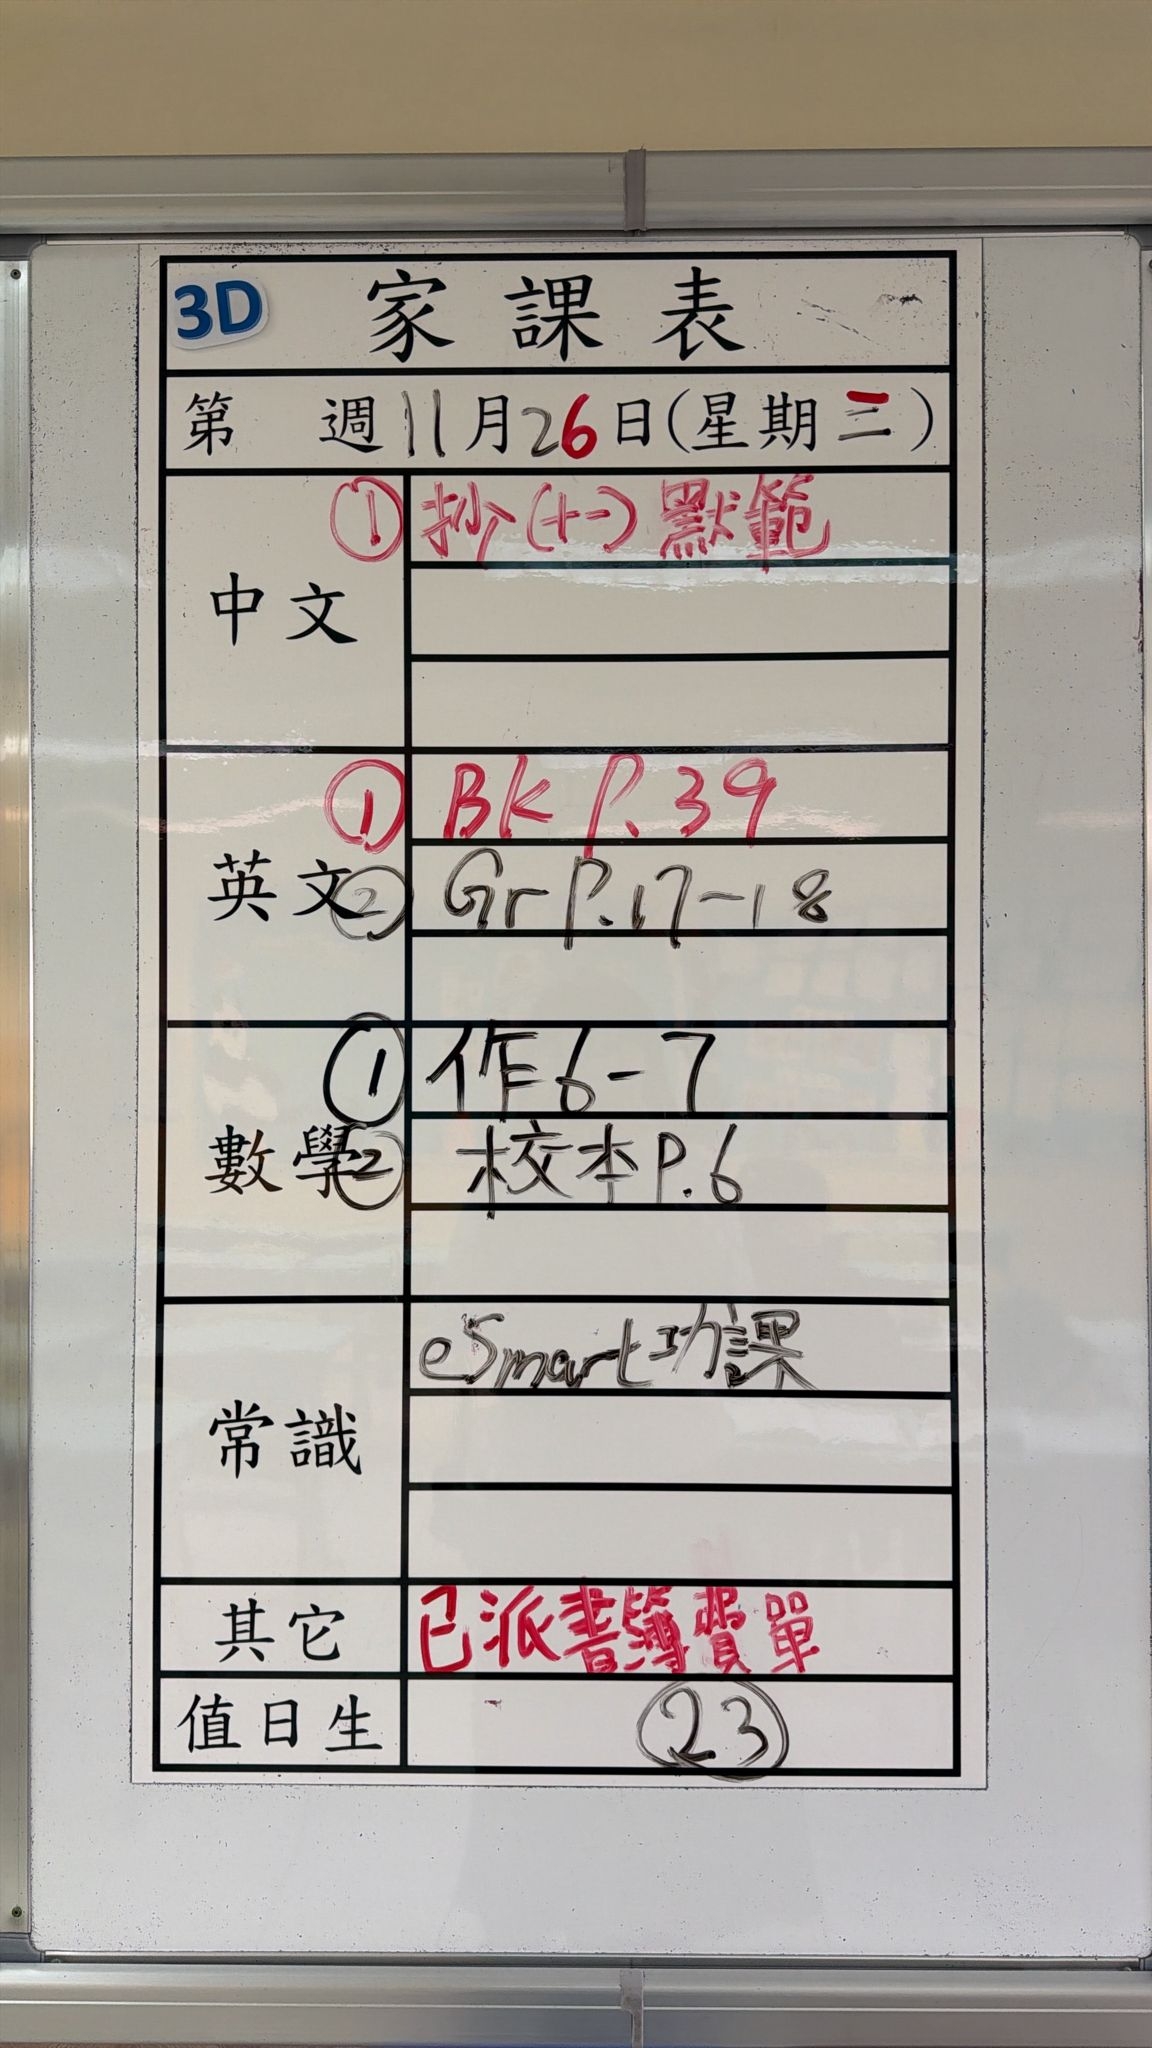 3D 家課表
第 週 11月26日(星期三)
中文
① 抄(十一)默範
英文
① BK P.39
② Gr P.17-18
數學
① 作6-7
② 校本P.6
常識
eSmart功課
其它 已派書簿費單
值日生 23